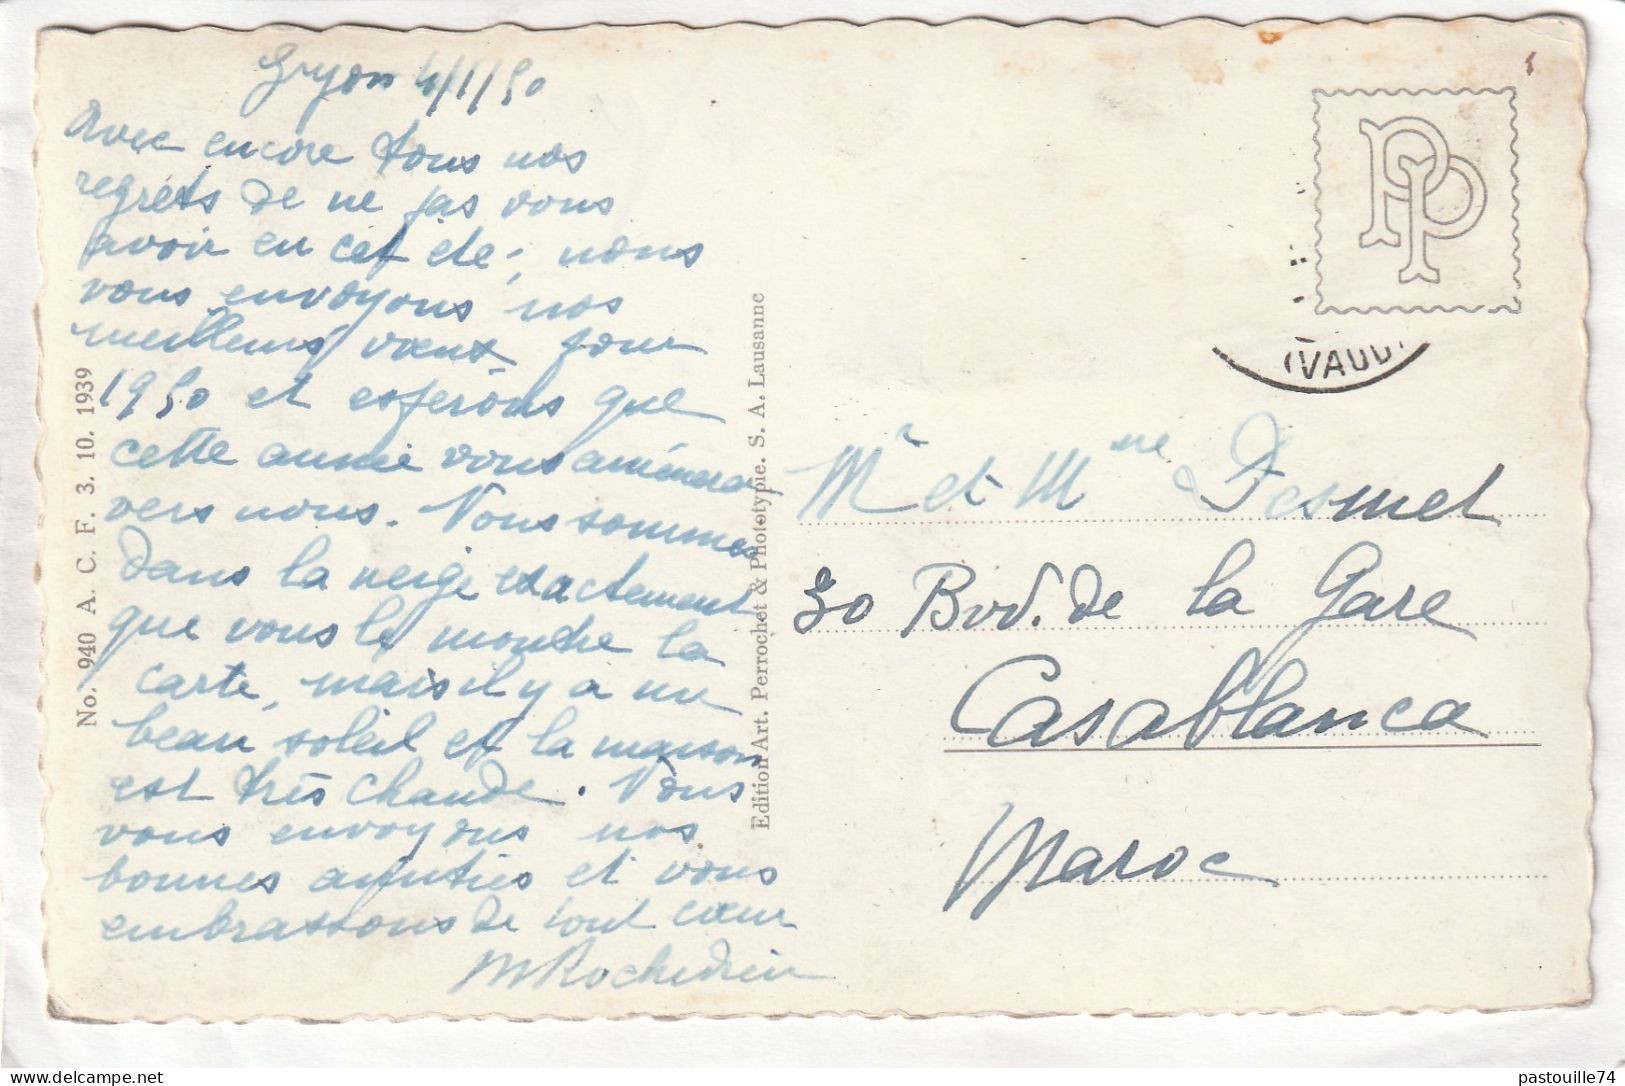 Gryon 4/1/50
Avec encore tous nos
regrets de ne pas vous
avoir eu cet été, nous
vous envoyons nos
meilleurs vœux pour
1950 et espérons que
cette année vous amènera
vers nous. Nous sommes
dans la neige exactement
que vous le montre la
carte, mais il y a un
beau soleil et la maison
est très chaude. Nous
vous envoyons nos
bonnes amitiés et vous
embrassons de tout cœur
M Rochedieu
No. 940 A. C. F. 3. 10. 1939
Edition Art. Perrochet & Phototypie. S. A. Lausanne
PP
(VAUD)
Mr et Mme Desmet
30 Bvd. de la Gare
Casablanca
Maroc
pastouille74